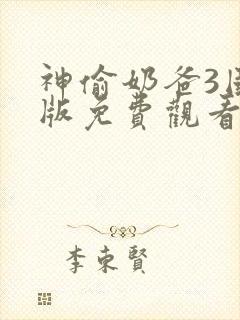 神偷奶爸3国
版免費觀看
李東賢